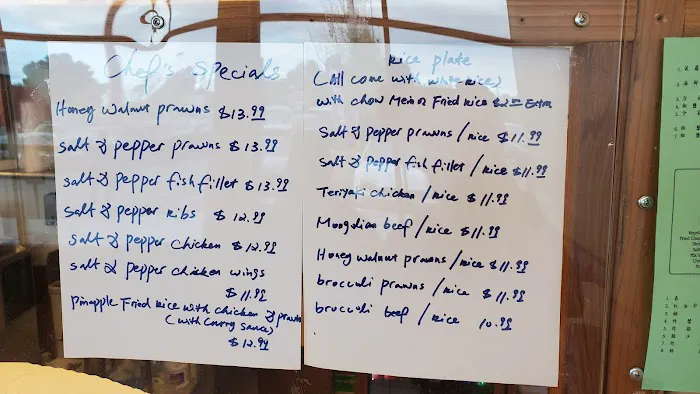 Chef's Specials
Honey walnut prawns $13.99
salt & pepper prawns $13.99
salt & pepper fish fillet $13.99
salt & pepper Ribs $12.99
salt & pepper chicken $12.99
salt & pepper chicken wings
$11.99
pinapple Fried Rice with chicken & prawns
(with curry sauce)
$12.99
Rice plate
(All come with white rice)
with chow Mein or Fried Rice $2.00 Extra
Salt & pepper prawns / Rice $11.99
salt & pepper fish fillet / Rice $11.99
Teriyaki chicken / Rice $11.99
Mongolian beef / Rice $11.99
Honey walnut prawns / Rice $11.99
broccoli prawns / Rice $11.99
broccoli beef / Rice 10.99